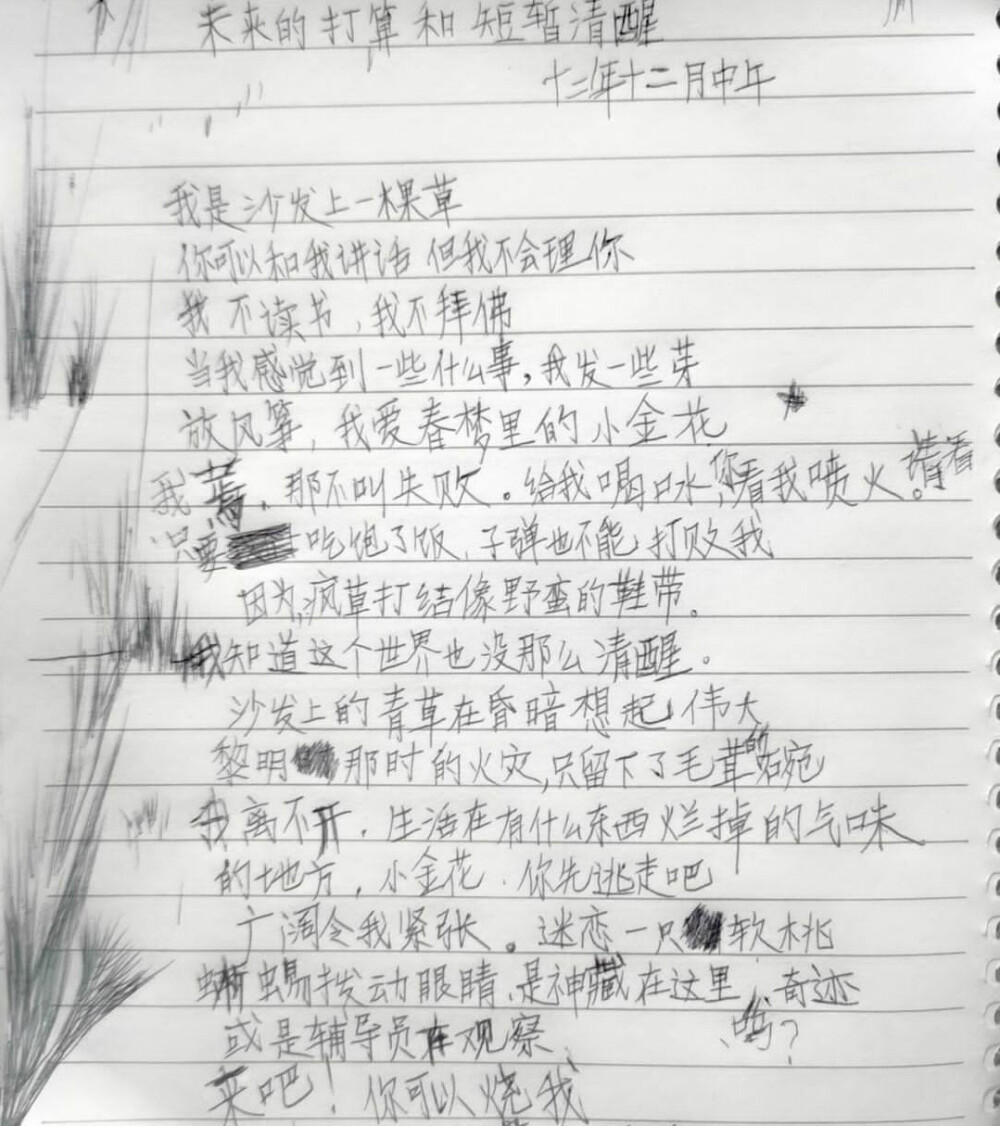 未来的打算和短暂清醒
十二年十二月中午
我是沙发上一棵草
你可以和我讲话 但我不会理你
我不读书，我不拜佛
当我感觉到一些什么事，我发一些芽
放风筝，我爱春梦里的小金花
我蔫，那不叫失败。给我喝口水，你看我喷火。请看
只要吃饱了饭，子弹也不能打败我
因为，疯草打结像野蛮的鞋带。
我知道这个世界也没那么清醒。
沙发上的青草在昏暗想起伟大
黎明那时的火灾，只留下了毛茸的
我离不开，生活在有什么东西烂掉的气味
的地方，小金花，你先逃走吧
广阔令我紧张。迷恋一只软桃
蜥蜴拨动眼睛，是神藏在这里，奇迹
吗？
或是辅导员在观察，
来吧！你可以烧我